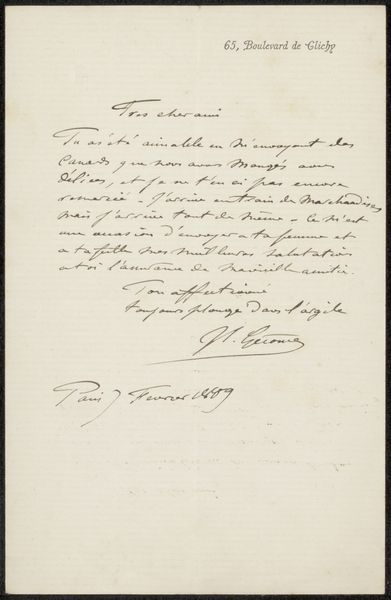 65, Boulevard de Clichy
Très cher ami
Tu as été aimable en m'envoyant des
canards que nous avons mangés avec
délices, et je ne t'en ai pas encore
remercié - J'arrive en train de Marchandises
mais j'arrive tout de même - Ce m'est
une occasion d'envoyer a ta femme et
a ta fille mes meilleures salutations
a toi l'assurance de ma vieille amitié.
Ton affectionné
toujours plongé dans l'argile
JL. Gerome
Paris 7 Fevrier 1889